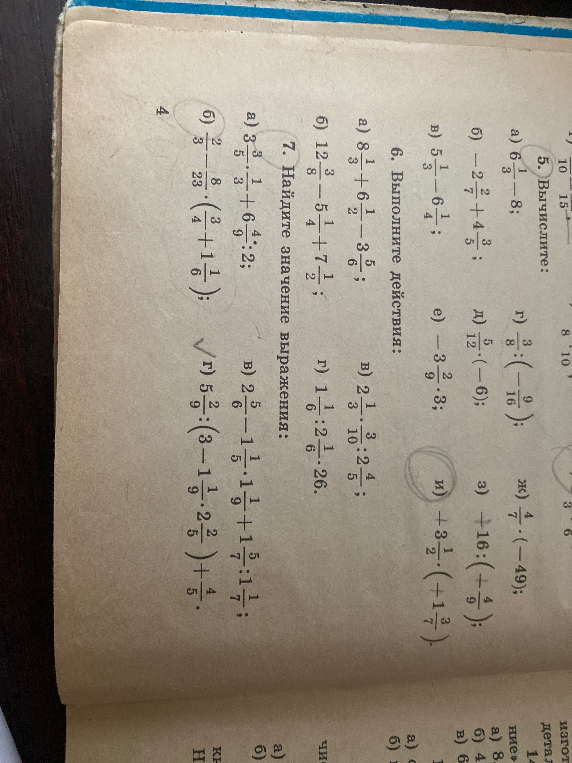 5. Вычислите:
а) 6 1/3 − 8; г) 3/8 : (− 9/16); ж) 4/7 · (−49);
б) −2 2/7 + 4 3/5; д) 5/12 · (−6); з) +16 : (+ 4/9);
в) 5 1/3 − 6 1/4; е) −3 2/9 · 3; и) +3 1/2 · (+1 3/7).
6. Выполните действия:
а) 8 1/3 + 6 1/2 − 3 5/6; в) 2 1/3 · 3/10 : 2 4/5;
б) 12 3/8 − 5 1/4 + 7 1/2; г) 1 1/6 : 2 1/6 · 26.
7. Найдите значение выражения:
а) 3 3/5 · 1/3 + 6 4/9 : 2; в) 2 5/6 − 1 1/5 · 1 1/9 + 1 5/7 : 1 1/7;
б) 2/3 − 8/23 · (3/4 + 1 1/6); г) 5 2/9 : (3 − 1 1/9 · 2 2/5) + 4/5.
4